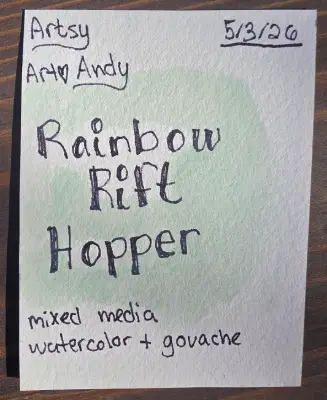 Artsy 5/3/26
Art♥ Andy
Rainbow
Rift
Hopper
mixed media
watercolor + gouache